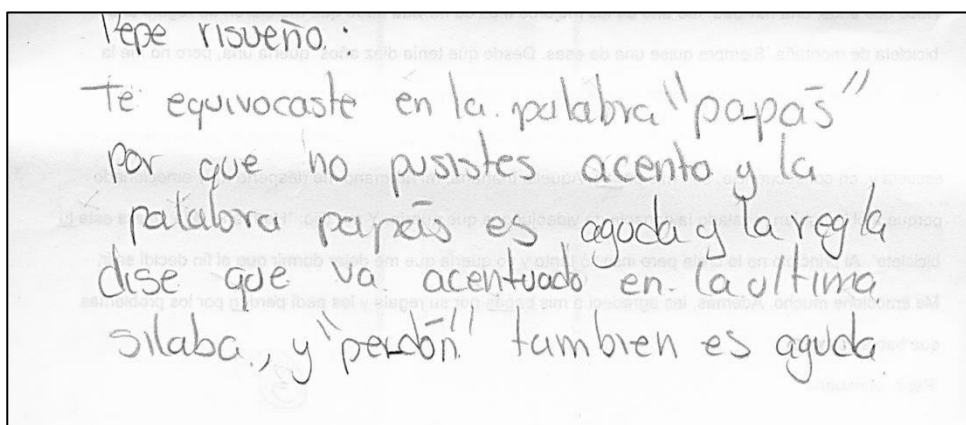 Pepe risueño.
Te equivocaste en la palabra "papás"
Por que no pusistes acento y la
palabra papás es aguda y la regla
dise que va acentuado en la ultima
silaba, y "perdón" tambien es aguda